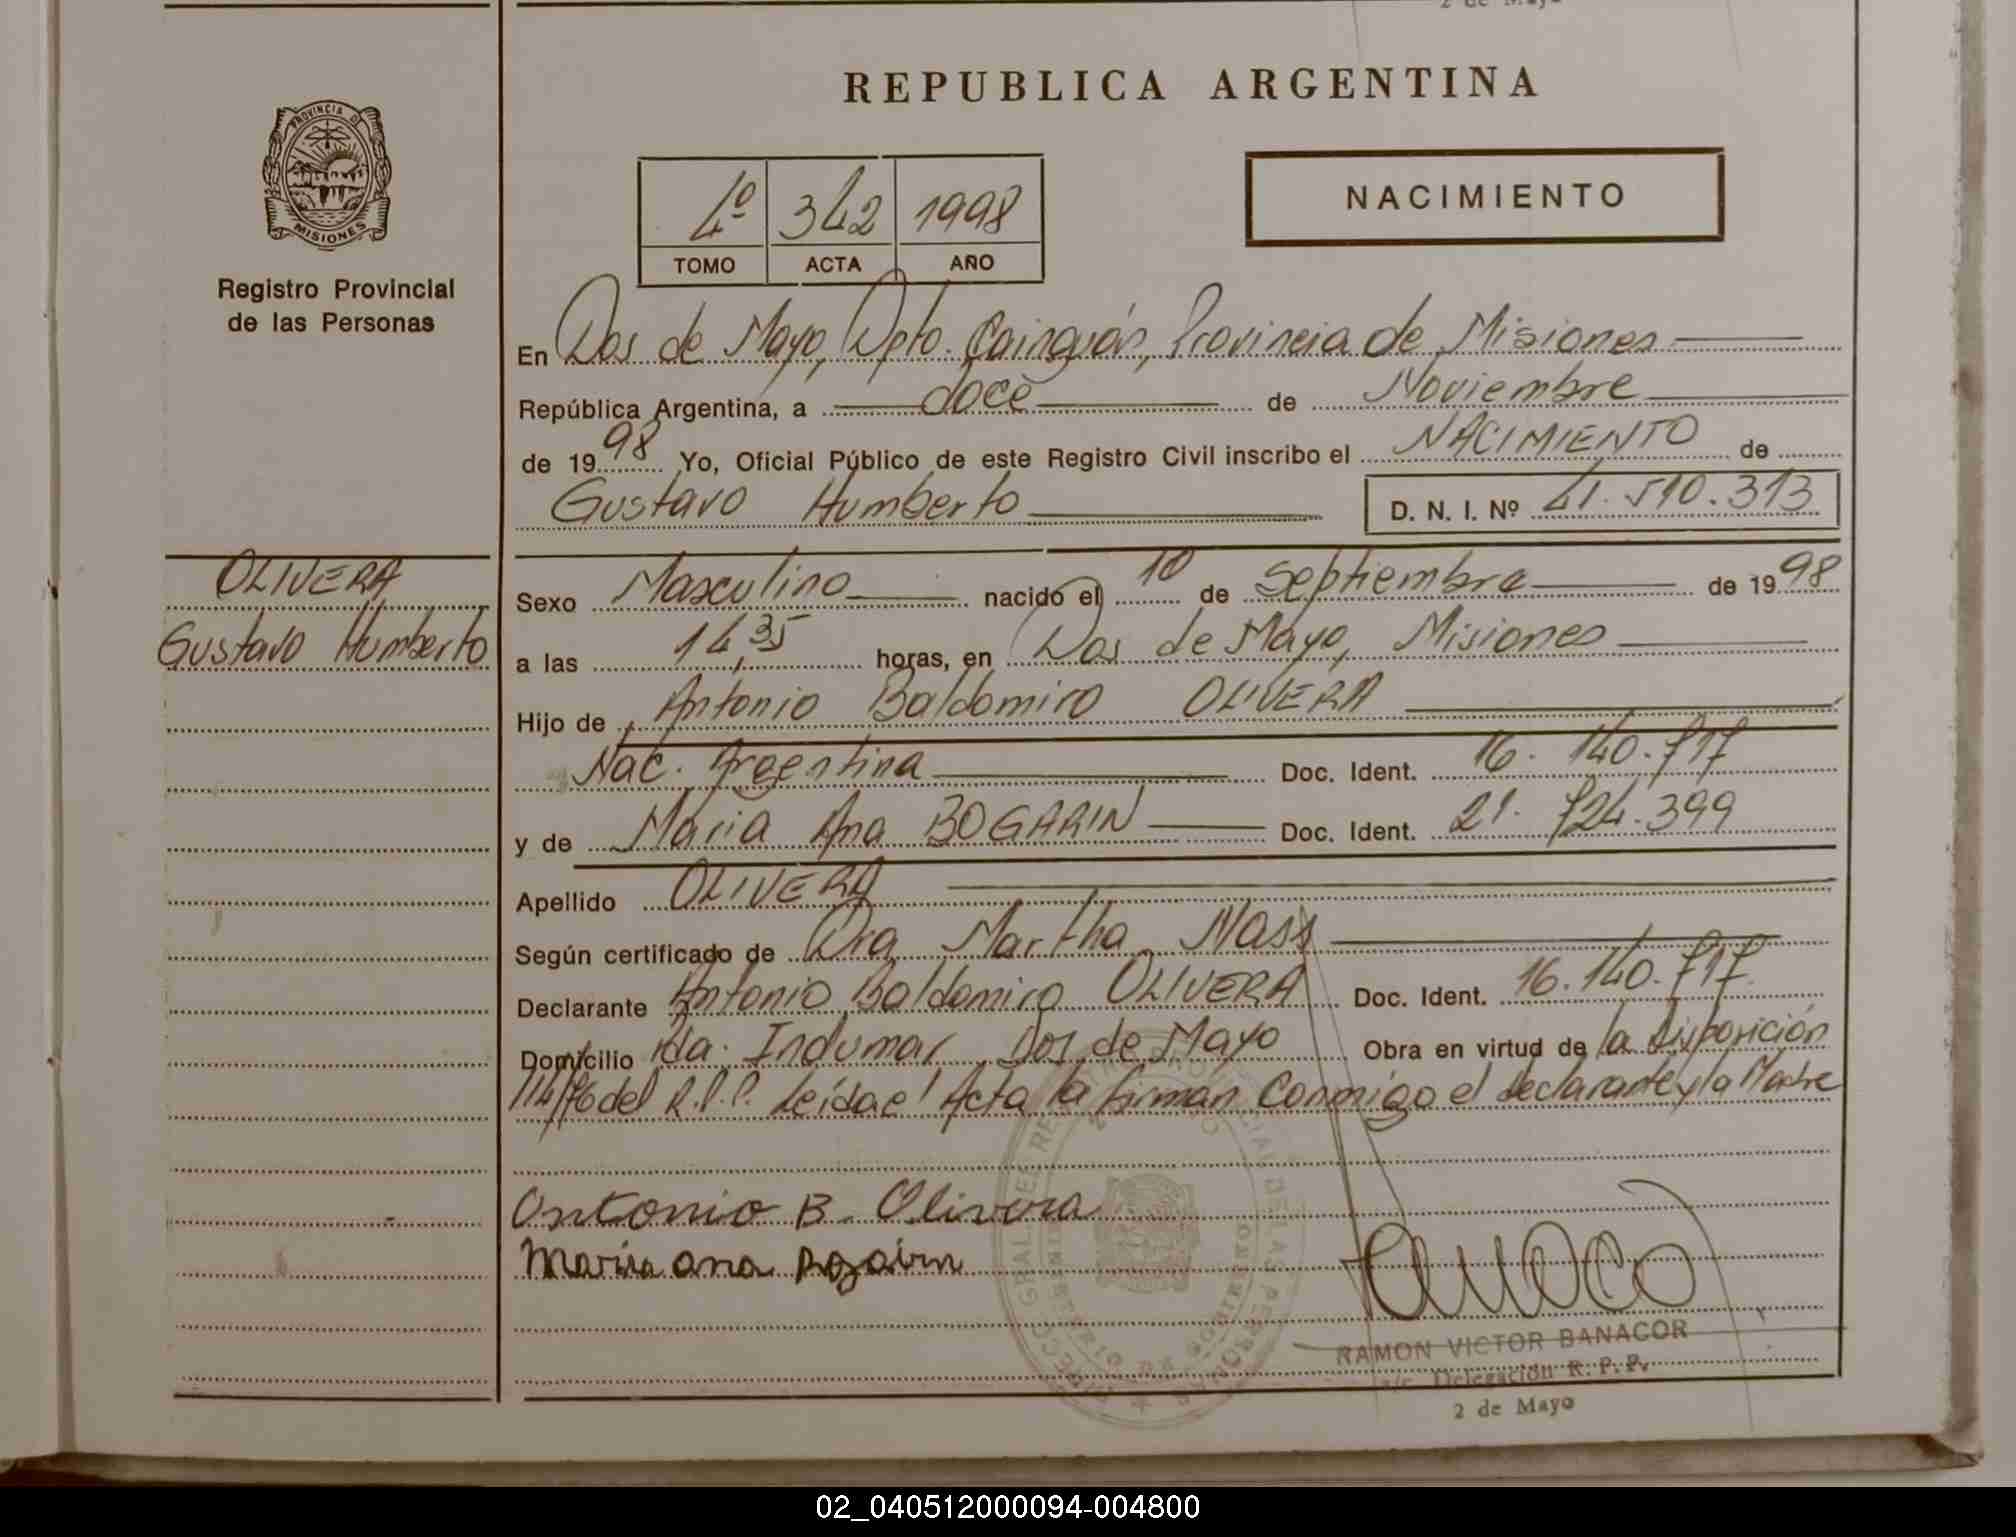 2 de Mayo
REPUBLICA ARGENTINA
PROVINCIA DE
MISIONES
Registro Provincial
de las Personas
4º 342 1998
TOMO ACTA AÑO
NACIMIENTO
En Dos de Mayo, Dpto. Cainguás, Provincia de Misiones
República Argentina, a doce de Noviembre
de 1998 Yo, Oficial Público de este Registro Civil inscribo el NACIMIENTO de
Gustavo Humberto D. N. I. Nº 41.510.313
OLIVERA
Gustavo Humberto
Sexo Masculino nacido el 10 de Septiembre de 1998
a las 14,35 horas, en Dos de Mayo, Misiones
Hijo de Antonio Baldomiro OLIVERA
Nac. Argentina Doc. Ident. 16.140.717
y de Maria Ana BOGARIN Doc. Ident. 21.724.399
Apellido OLIVERA
Según certificado de Dra. Martha Nass
Declarante Antonio Baldomiro OLIVERA Doc. Ident. 16.140.717
Domicilio Rda. Indumar Dos de Mayo Obra en virtud de la disposición
114/76 del R.P.P. Leída el Acta la firman conmigo el declarante y la Madre
Antonio B. Olivera
Maria ana
RAMON VICTOR BANACOR
a/c. Delegación R. P. P.
2 de Mayo
02_040512000094-004800